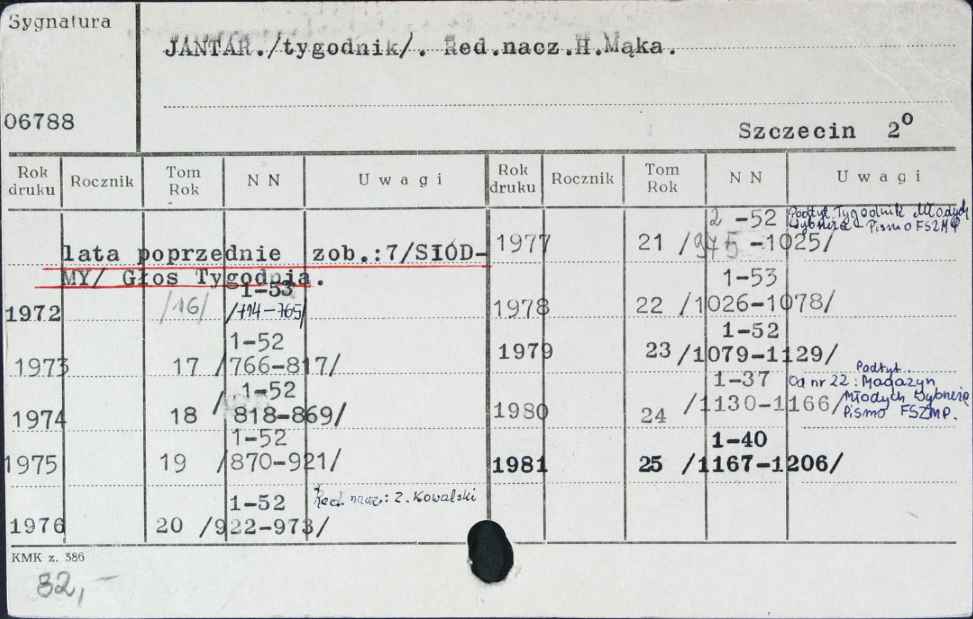 Sygnatura
JANTAR./tygodnik/. Red.nacz.H.Mąka.
06788
Szczecin 2º
Rok druku Rocznik Tom Rok N N U w a g i Rok druku Rocznik Tom Rok N N U w a g i
lata poprzednie zob.:7/SIÓD-
MY/ Głos Tygodnia.
1-53
1972 /16/ /714-765/
1-52
1973 17 /766-817/
1-52
1974 18 /818-869/
1-52
1975 19 /870-921/
1-52 Red. nacz.: Z. Kowalski
1976 20 /922-973/
2 -52 Podtyt. Tygodnik Młodych
Wybrzeża Pismo FSZMP
1977 21 /975 -1025/
1-53
1978 22 /1026-1078/
1-52
1979 23 /1079-1129/
1-37 Podtyt.
Od nr 22: Magazyn
1980 24 /1130-1166/ Młodych Wybrzeża
Pismo FSZMP.
1-40
1981 25 /1167-1206/
KMK z. 586
82,-